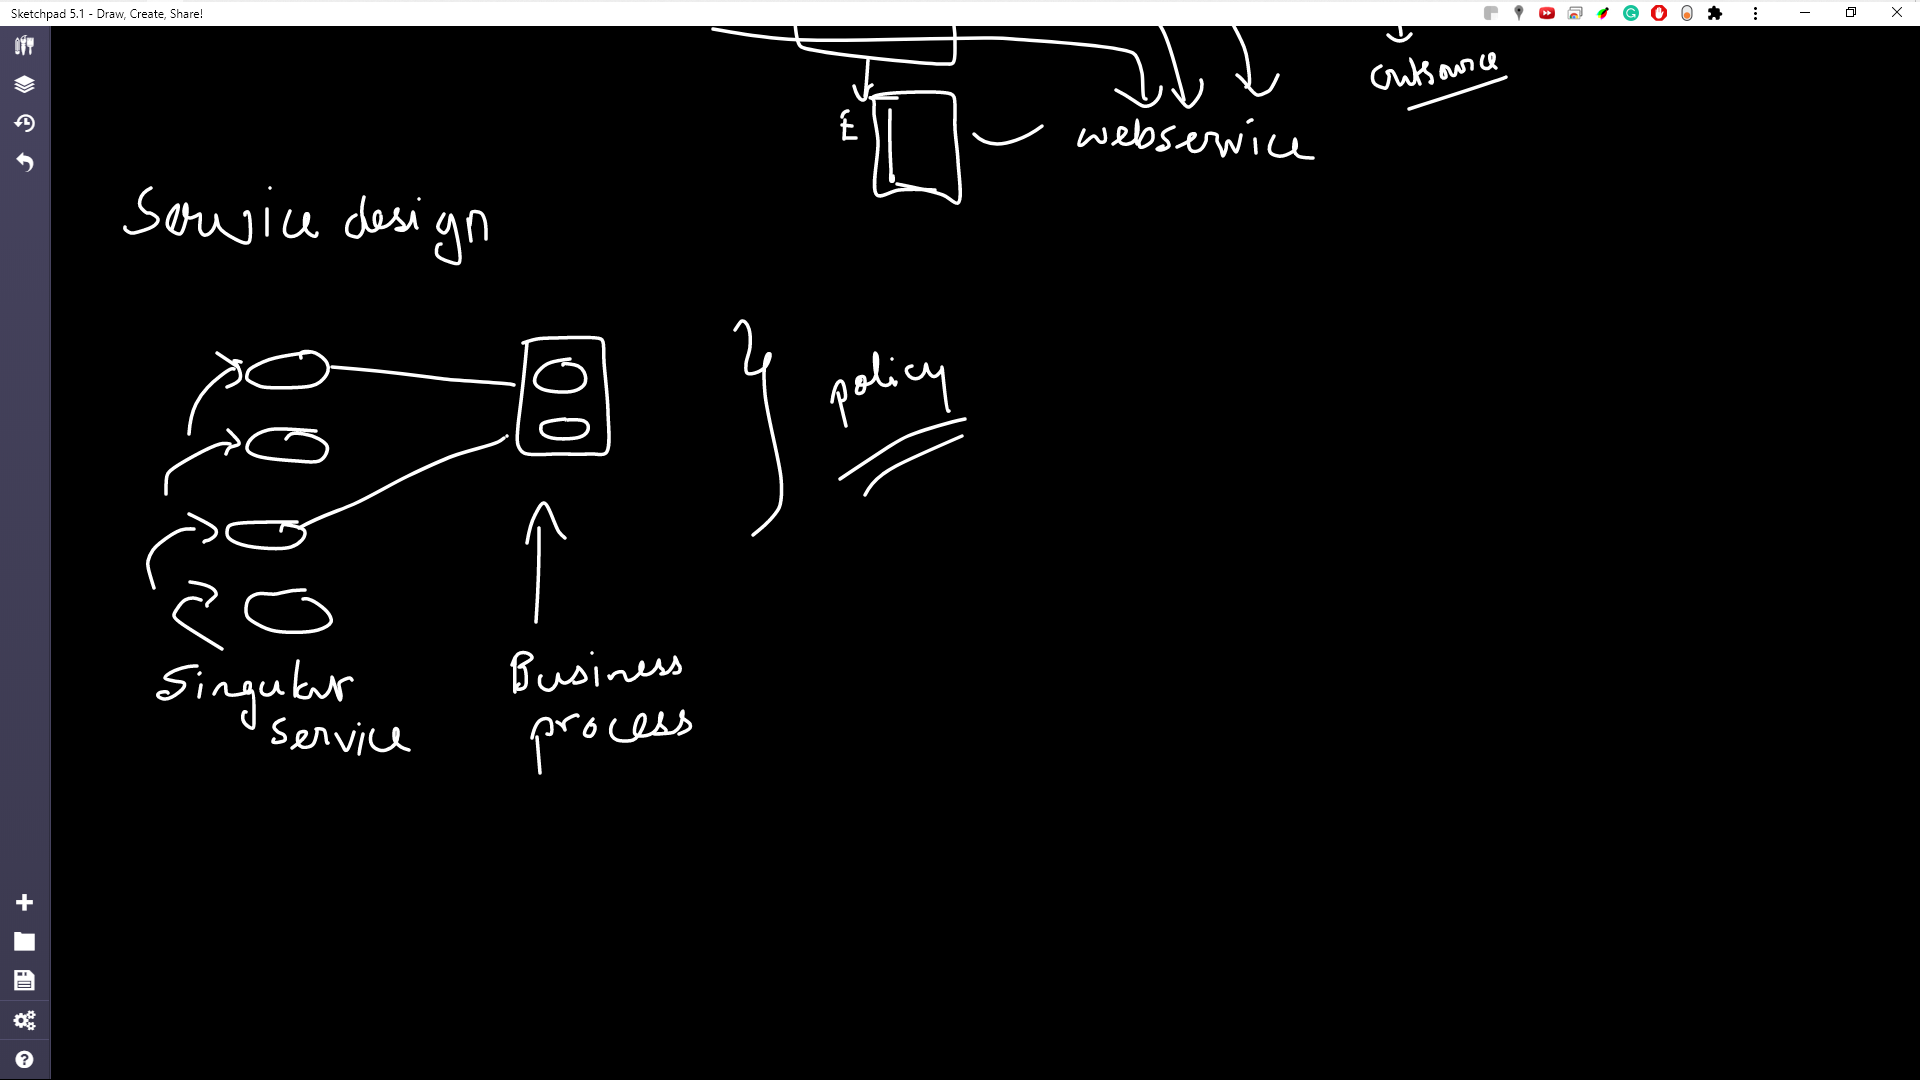 Sketchpad 5.1 - Draw, Create, Share!
outsource
E
webservice
Service design
policy
Singular
service
Business
process